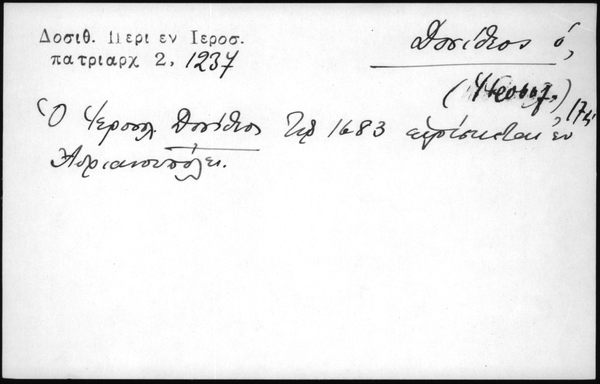 Δοσιθ. Περι εν Ιεροσ.
πατριαρχ 2, 1237
Δοσίθεος ὁ,
(Ἱεροσολ.)
Ὁ Ἱεροσολ. Δοσίθεος τῷ 1683 εὑρίσκεται ἐν
Ἀδριανουπόλει.